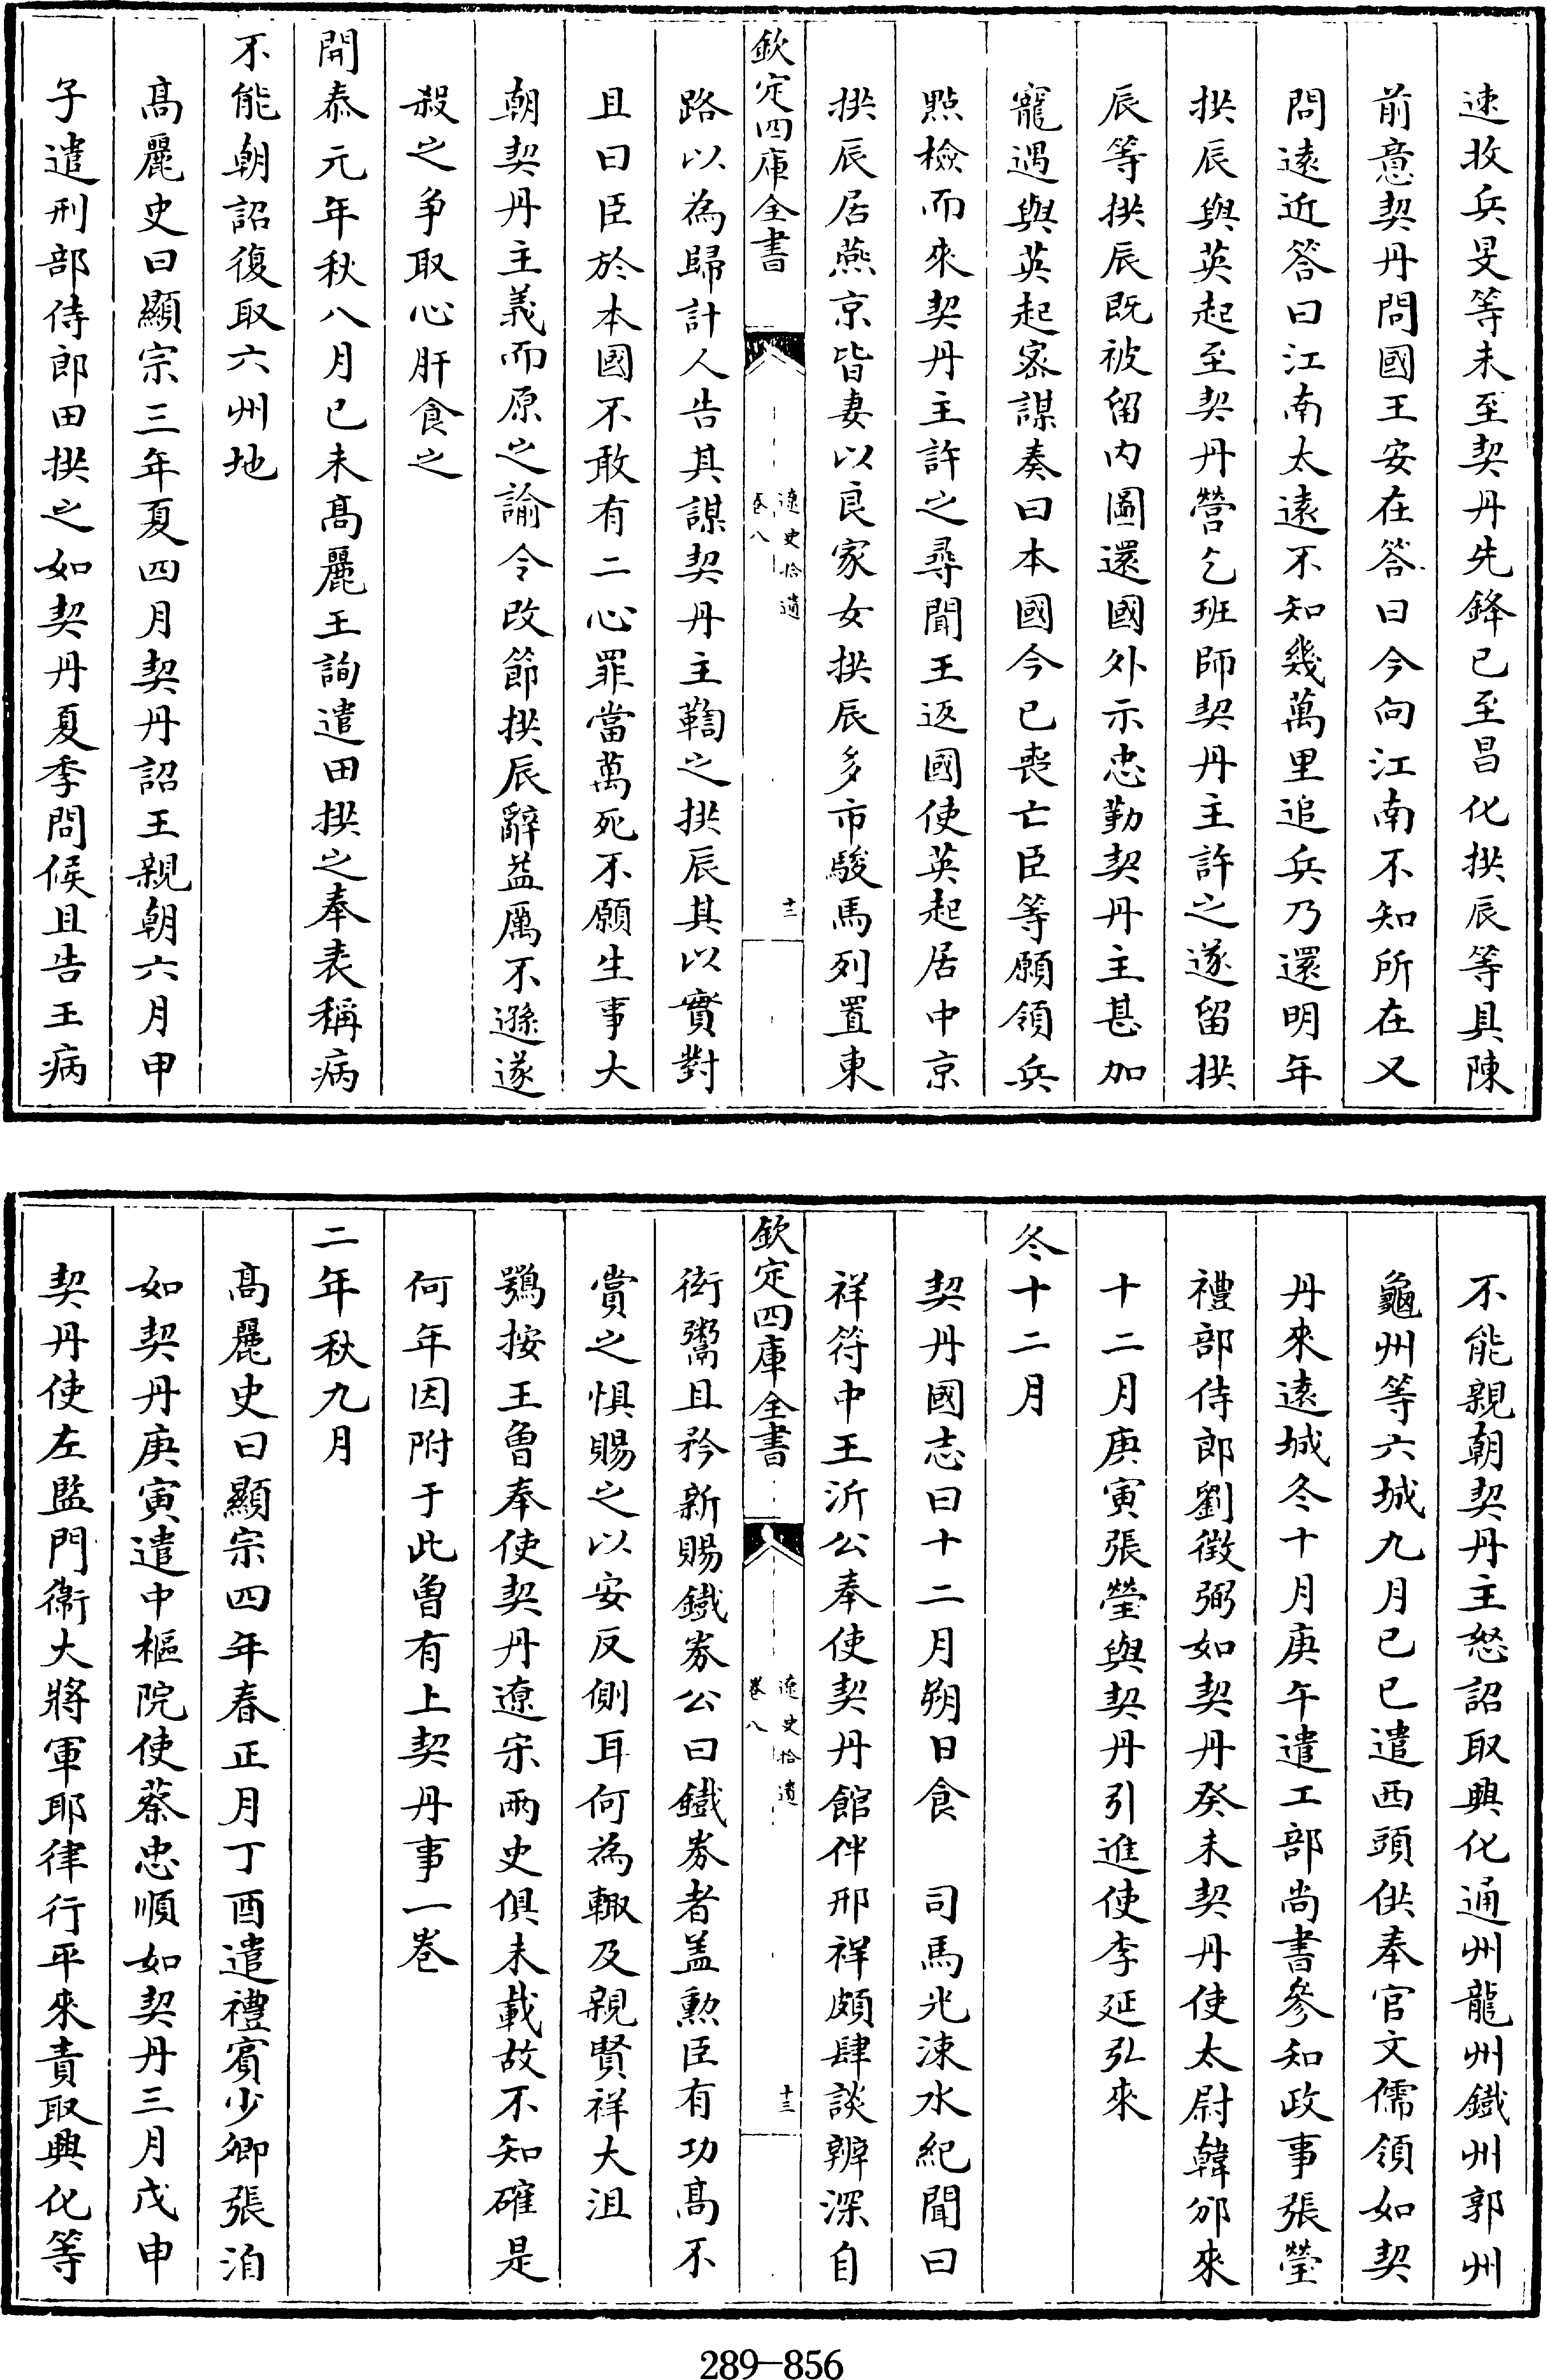 速收兵旻等未至契丹先鋒已至昌化拱辰等具陳
前意契丹問國王安在答曰今向江南不知所在又
問遠近答曰江南太遠不知幾萬里追兵乃還明年
拱辰與英起至契丹營乞班師契丹主許之遂留拱
辰等拱辰既被留内圖還國外示忠勤契丹主甚加
寵遇與英起宻謀奏曰本國今已喪亡臣等願領兵
點檢而來契丹主許之尋聞王返國使英起居中京
拱辰居燕京皆妻以良家女拱辰多市駿馬列置東
欽定四庫全書
遼史拾遺
卷八
十二
路以為歸計人告其謀契丹主鞫之拱辰具以實對
且曰臣於本國不敢有二心罪當萬死不願生事大
朝契丹主義而原之諭令改節拱辰辭益厲不遜遂
殺之争取心肝食之
開泰元年秋八月己未髙麗王詢遣田拱之奉表稱病
不能朝詔復取六州地
髙麗史曰顯宗三年夏四月契丹詔王親朝六月甲
子遣刑部侍郎田拱之如契丹夏季問候且告王病
不能親朝契丹主怒詔取興化通州龍州鐵州郭州
龜州等六城九月己巳遣西頭供奉官文儒領如契
丹來遠城冬十月庚午遣工部尚書參知政事張瑩
禮部侍郎劉徴弼如契丹癸未契丹使太尉韓邠來
十二月庚寅張瑩與契丹引進使李延弘來
冬十二月
契丹國志曰十二月朔日食　司馬光涑水紀聞曰
祥符中王沂公奉使契丹館伴邢祥頗肆談辨深自
欽定四庫全書
遼史拾遺
卷八
十三
衒鬻且矜新賜鐵券公曰鐵券者盖勲臣有功髙不
賞之懼賜之以安反側耳何為輙及親賢祥大沮
鶚按王曾奉使契丹遼宋兩史俱未載故不知確是
何年因附于此曾有上契丹事一卷
二年秋九月
髙麗史曰顯宗四年春正月丁酉遣禮賓少卿張洎
如契丹庚寅遣中樞院使蔡忠順如契丹三月戊申
契丹使左監門衞大將軍耶律行平來責取興化等
289-856